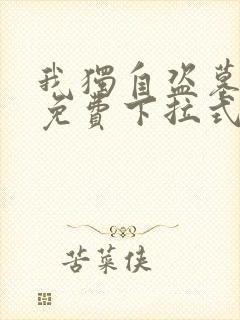 我獨自盗墓
免費下拉式
苦菜侠